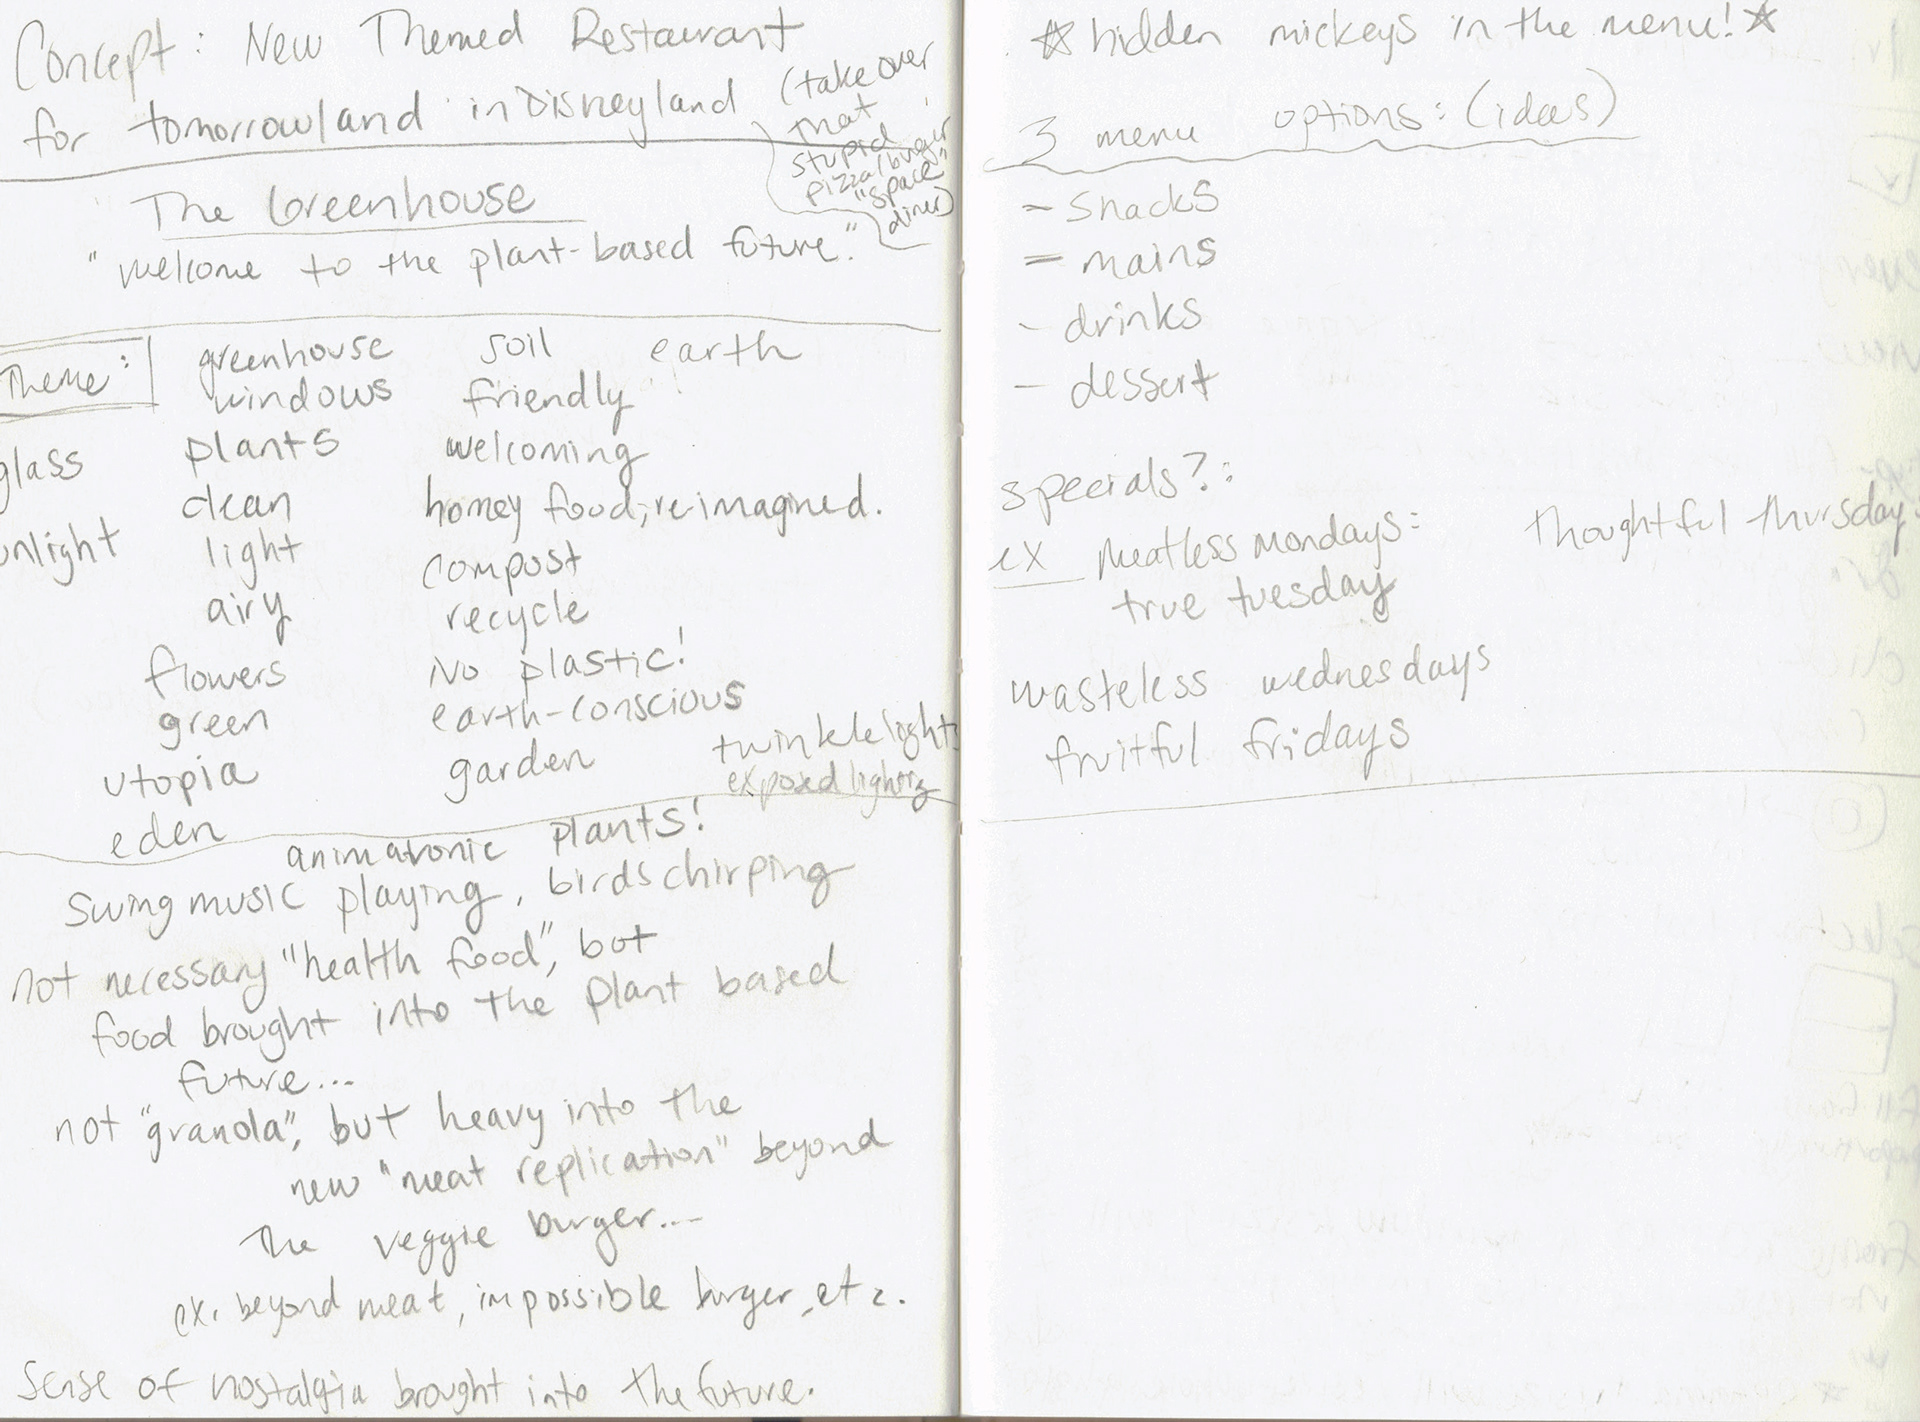 Concept: New Themed Restaurant
for tomorrowland in Disneyland
(take over
that
stupid
pizza/burger
"space"
diner)
The Greenhouse
"welcome to the plant-based future."
Theme:
greenhouse soil earth
windows friendly
glass plants welcoming
clean homey food, re-imagined.
unlight light compost
airy recycle
flowers No plastic!
green earth-conscious
utopia garden twinkle lights
exposed lighting
eden
animatronic plants!
swing music playing, birds chirping
not necessary "health food", but
food brought into the plant based
future...
not "granola", but heavy into the
new "meat replication" beyond
the veggie burger...
ex. beyond meat, impossible burger, etc.
Sense of nostalgia brought into the future.
☆ hidden mickeys in the menu! ☆
3 menu options: (ideas)
- snacks
- mains
- drinks
- dessert
specials?:
ex Meatless Mondays: thoughtful thursday
true tuesday
wasteless wednesdays
fruitful fridays